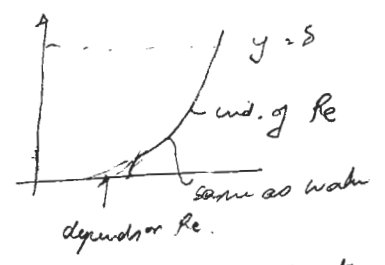 y = δ
ind. of Re
same as water
depends on Re.